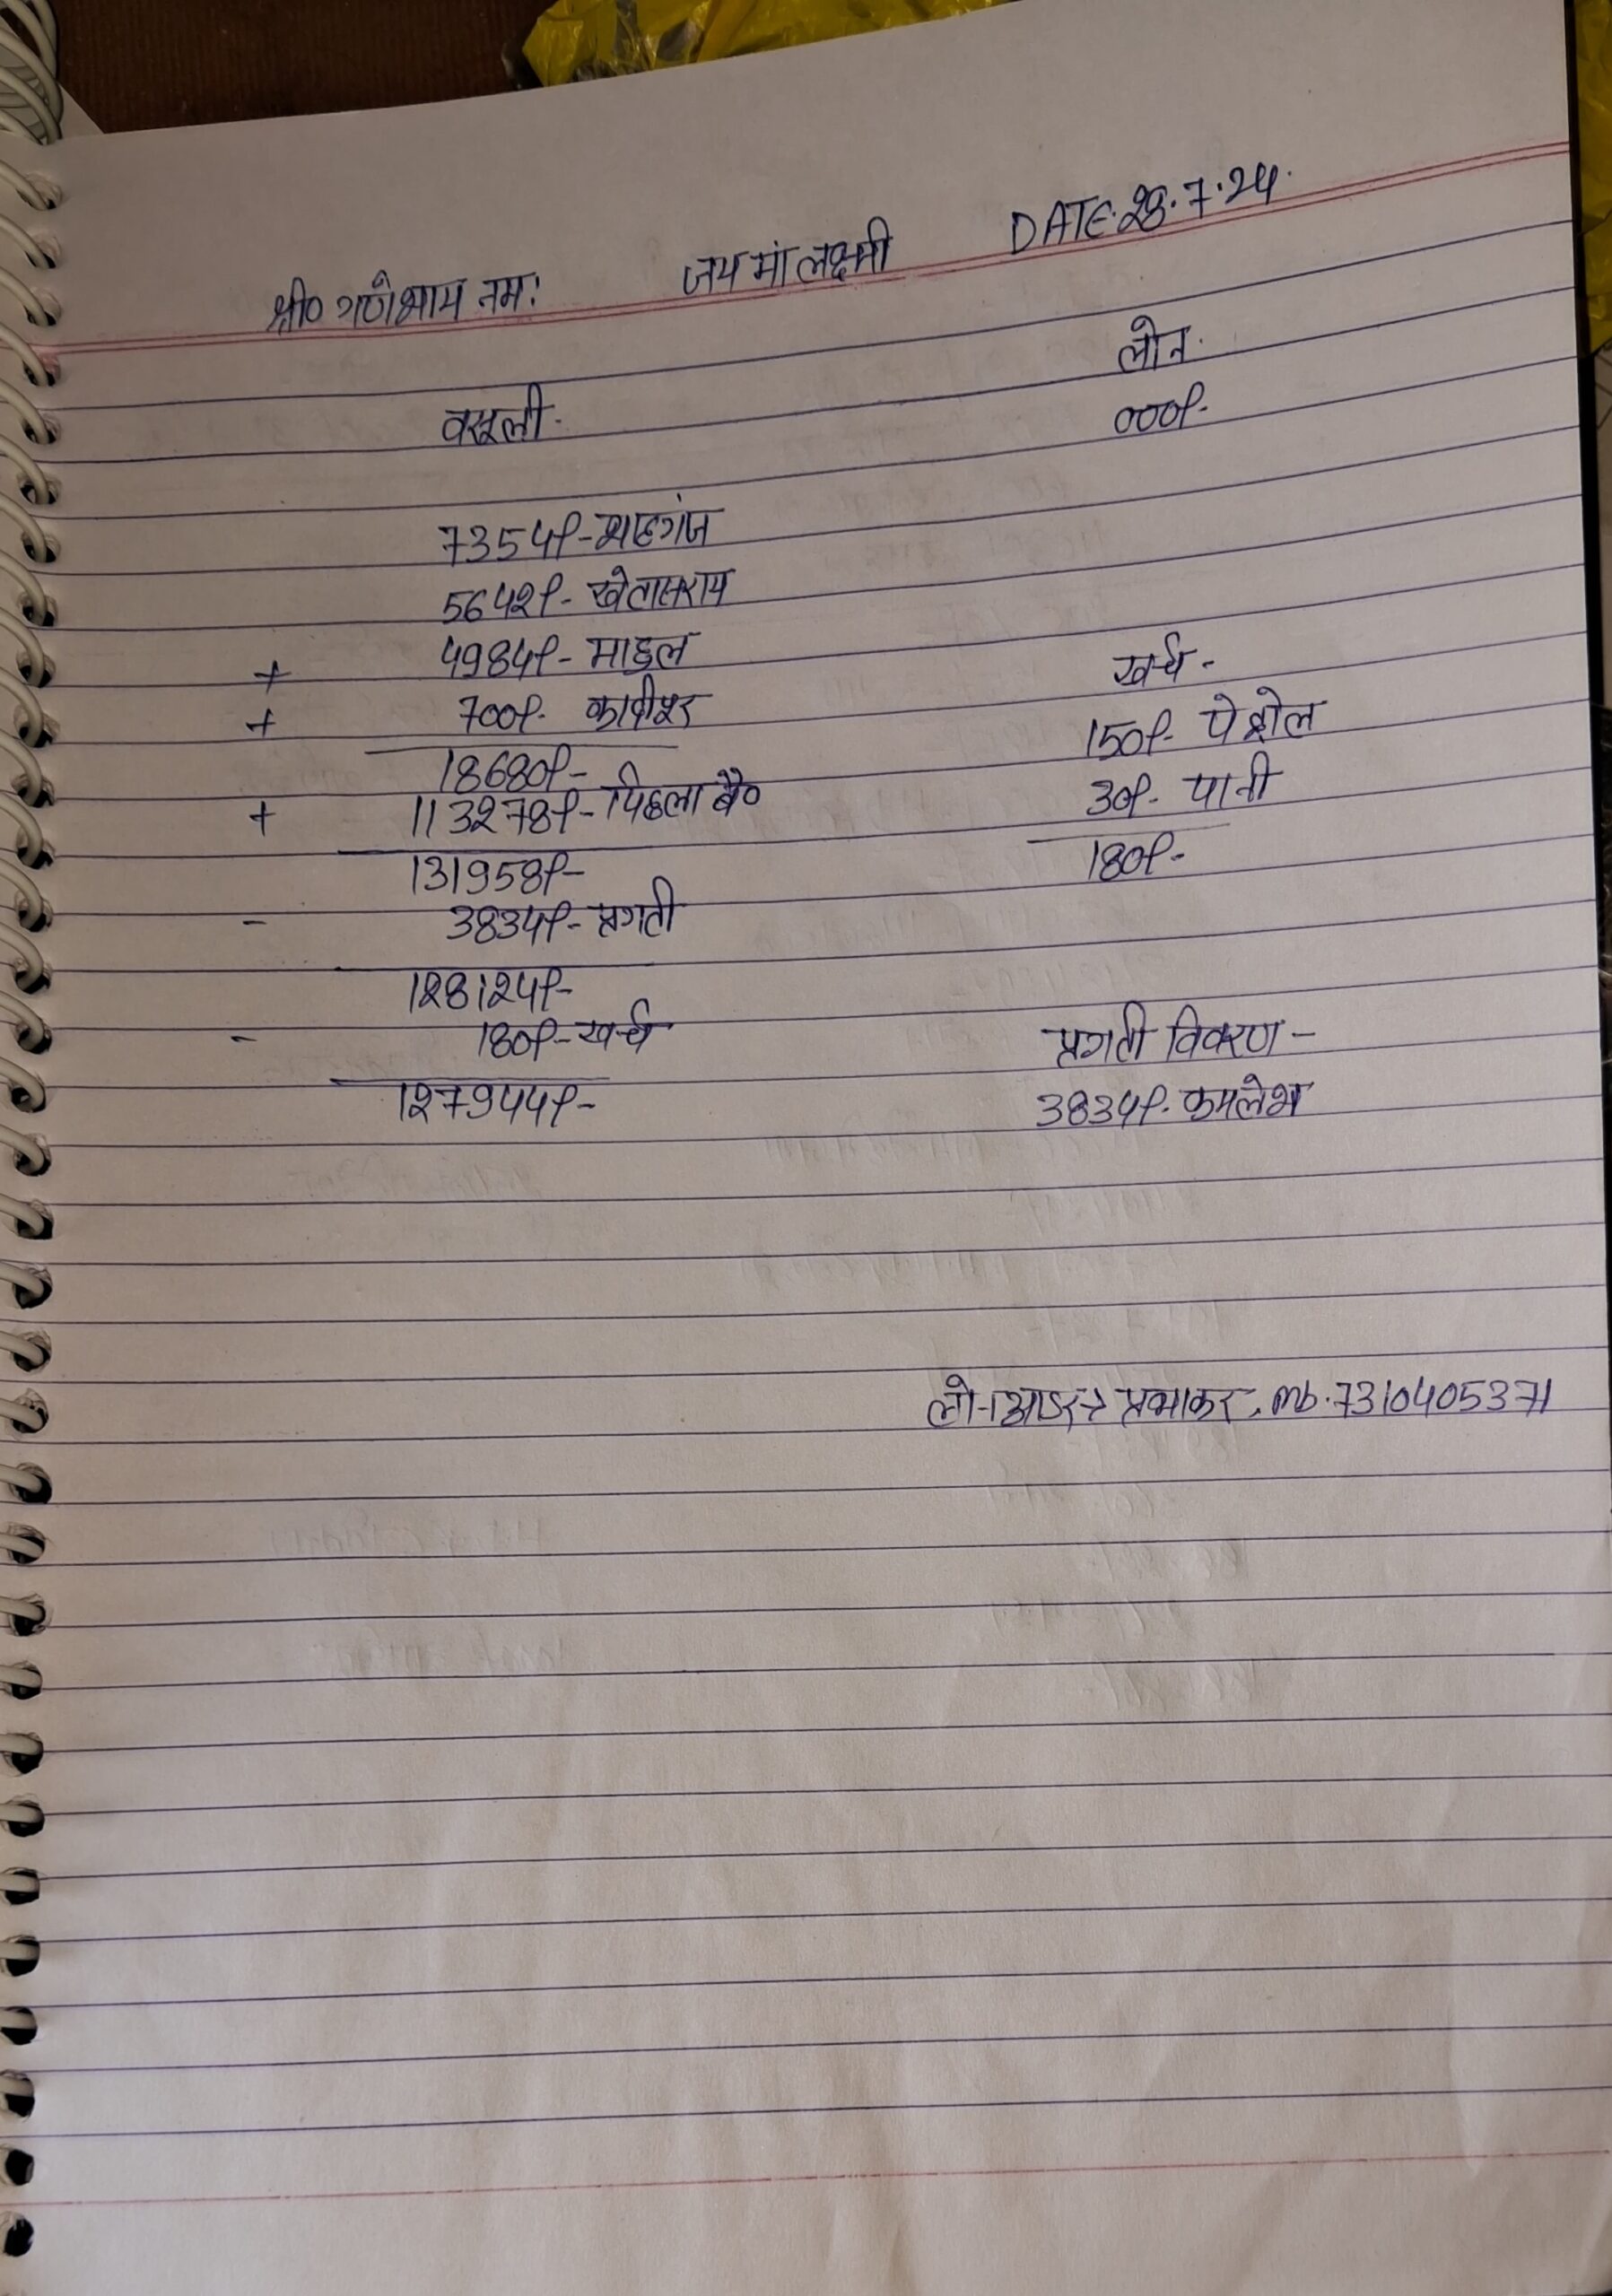 श्री० गणेशाय नमः जय मां लक्ष्मी DATE. 28.7.24.
लोन.
वसूली. 000/-
7354/- शाहगंज
5642/- खेतासराय
+ 4984/- माडल खर्च -
+ 700/- 150/- पेट्रोल
18680/- 30/- पानी
+ 113278/- पिछला बै०
131958/- 180/-
- 3834/- प्रगती
128124/-
- 180/- खर्च प्रगती विवरण -
127944/- 3834/- कमलेश
प्रभाकर, mb. 7310405371